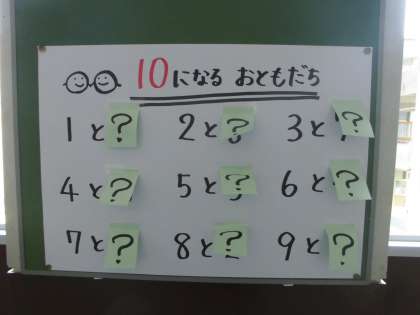 10になる おともだち
1と? 2と? 3と?
4と? 5と? 6と?
7と? 8と? 9と?